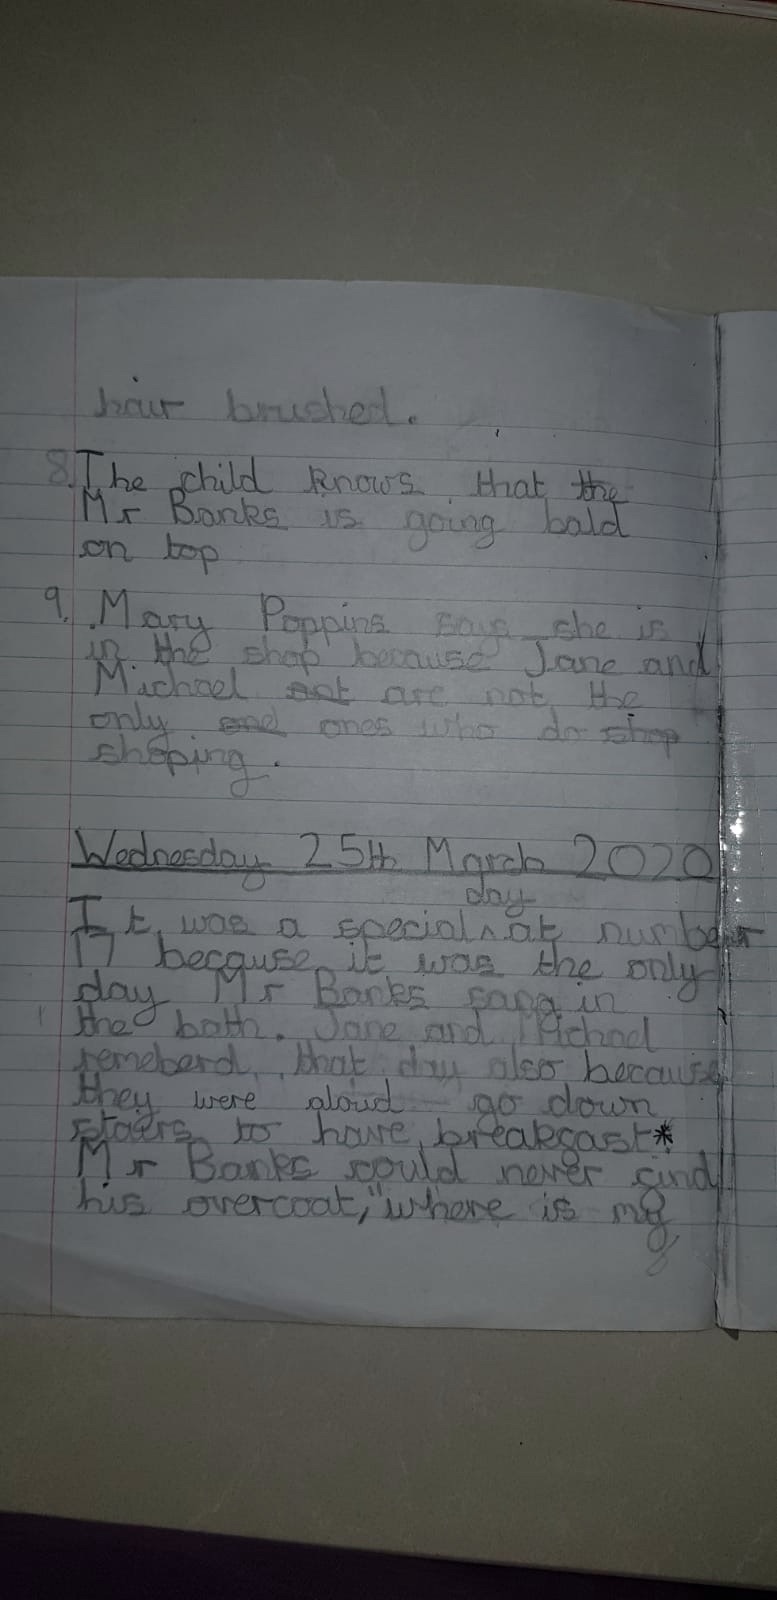 hair brushed.
8. The child knows that the
Mr Banks is going bald
on top
9. Mary Poppins says she is
in the shop because Jane and
Michael not are not the
only and ones who do shop
shoping.
Wednesday 25th March 2020
day
It was a special ^ at number
17 because it was the only
day Mr Banks sang in
the bath. Jane and Michael
remeberd that day also because
they were aloud go down
staers to have breakfast*
Mr Banks could never find
his overcoat, "where is my